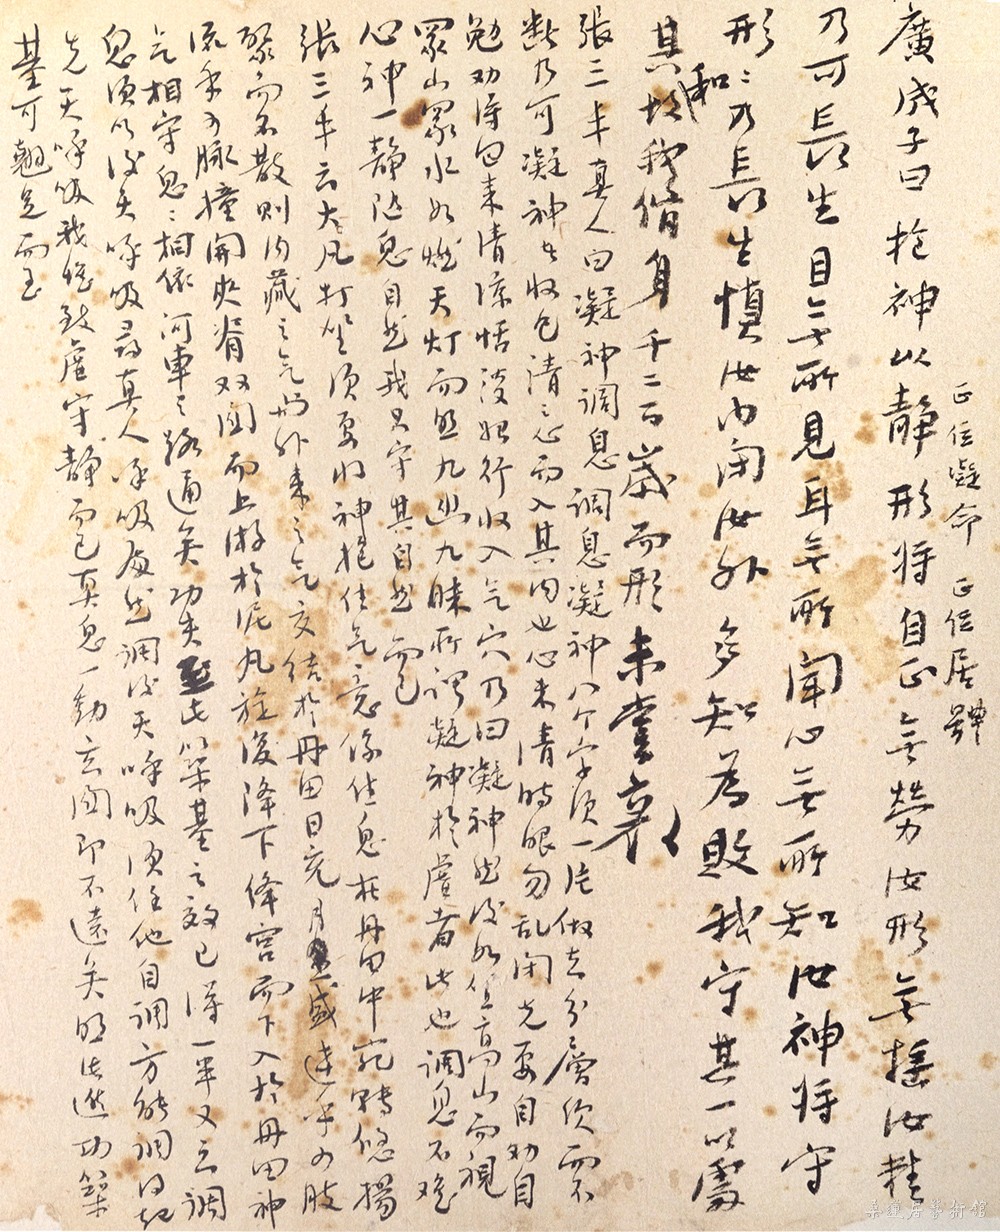 廣成子曰抱神以静形将自正無勞汝形無摇汝精
正位凝命　正位居體
乃可長生目無所見耳無所聞心無所知汝神将守
形形乃長生慎汝内闭汝外多知為敗我守其一以處
其和故我脩身千二百歲而形未嘗衰
張三丰真人曰凝神调息调息凝神八个字须一片做去分層次而不
断乃可凝神者收已清之心而入其内也心未清時眼勿乱闭先要自劝自
勉劝得回来清凉恬淡始行收入气穴乃曰凝神然後如坐高山而視
众山众水如燃天灯而照九幽九昧所謂凝神於虚者此也调息不难
心神一静随息自然我只守其自然而已
張三丰云大凡打坐须要将神抱住气意係住息在丹田中宛轉悠揚
聚而不散则内藏之气与外来之气交结於丹田日充月盛達乎四肢
流乎百脉撞開夾脊双関而上游於泥丸旋復降下绛宫而下入於丹田神
气相守息息相依河車之路通矣功夫至此築基之效已得一半又云调
息须以後天呼吸尋真人呼吸處然调後天呼吸须任他自调方能调得起
先天呼吸我惟致虚守静而已真息一動玄関即不遠矣照此進功築
基可翹足而至
桑蓮居藝術館